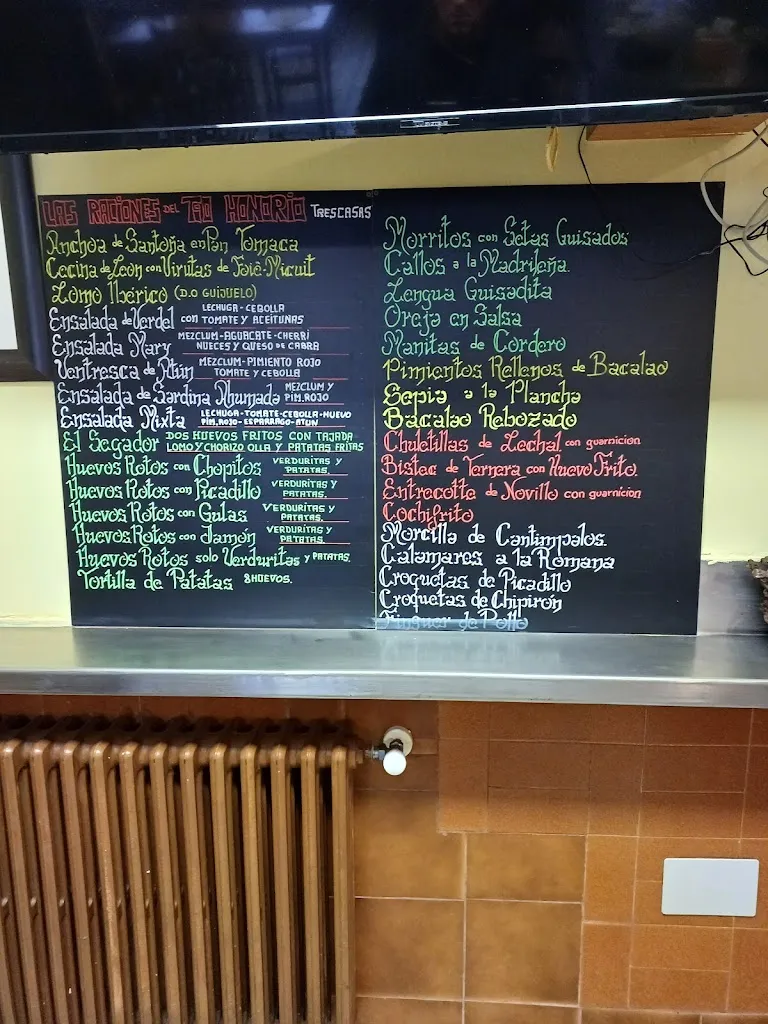 LAS RACIONES DEL TAO HONORIO TRESCASAS
Anchoa de Santoña en Pan Tomaca
Cecina de Leon con Virutas de Foie-Micuit
Lomo Iberico (D.O GUIJUELO)
Ensalada de Verdel LECHUGA-CEBOLLA
CON TOMATE Y ACEITUNAS
Ensalada Mary MEZCLUM-AGUACATE-CHERRI
NUECES Y QUESO DE CABRA
Ventresca de Atun MEZCLUM-PIMIENTO ROJO
TOMATE Y CEBOLLA
Ensalada de Sardina Ahumada MEZCLUM Y
PIM.ROJO
Ensalada Mixta LECHUGA-TOMATE-CEBOLLA-HUEVO
PIM.ROJO-ESPARRAGO-ATUN
El Segador DOS HUEVOS FRITOS CON TAJADA
LOMO Y CHORIZO OLLA Y PATATAS FRITAS
Huevos Rotos con Chopitos VERDURITAS Y
PATATAS.
Huevos Rotos con Picadillo VERDURITAS Y
PATATAS.
Huevos Rotos con Gulas VERDURITAS Y
PATATAS.
Huevos Rotos con Jamon VERDURITAS Y
PATATAS.
Huevos Rotos solo Verduritas Y PATATAS.
Tortilla de Patatas 8 HUEVOS.
Morritos con Setas Guisados
Callos a la Madrileña.
Lengua Guisadita
Oreja en Salsa
Manitas de Cordero
Pimientos Rellenos de Bacalao
Sepia a la Plancha
Bacalao Rebozado
Chuletillas de Lechal con guarnicion
Bistec de Ternera con Huevo Frito.
Entrecotte de Novillo con guarnicion
Cochifrito
Morcilla de Cantimpalos.
Calamares a la Romana
Croquetas de Picadillo
Croquetas de Chipiron
Finguer de Pollo